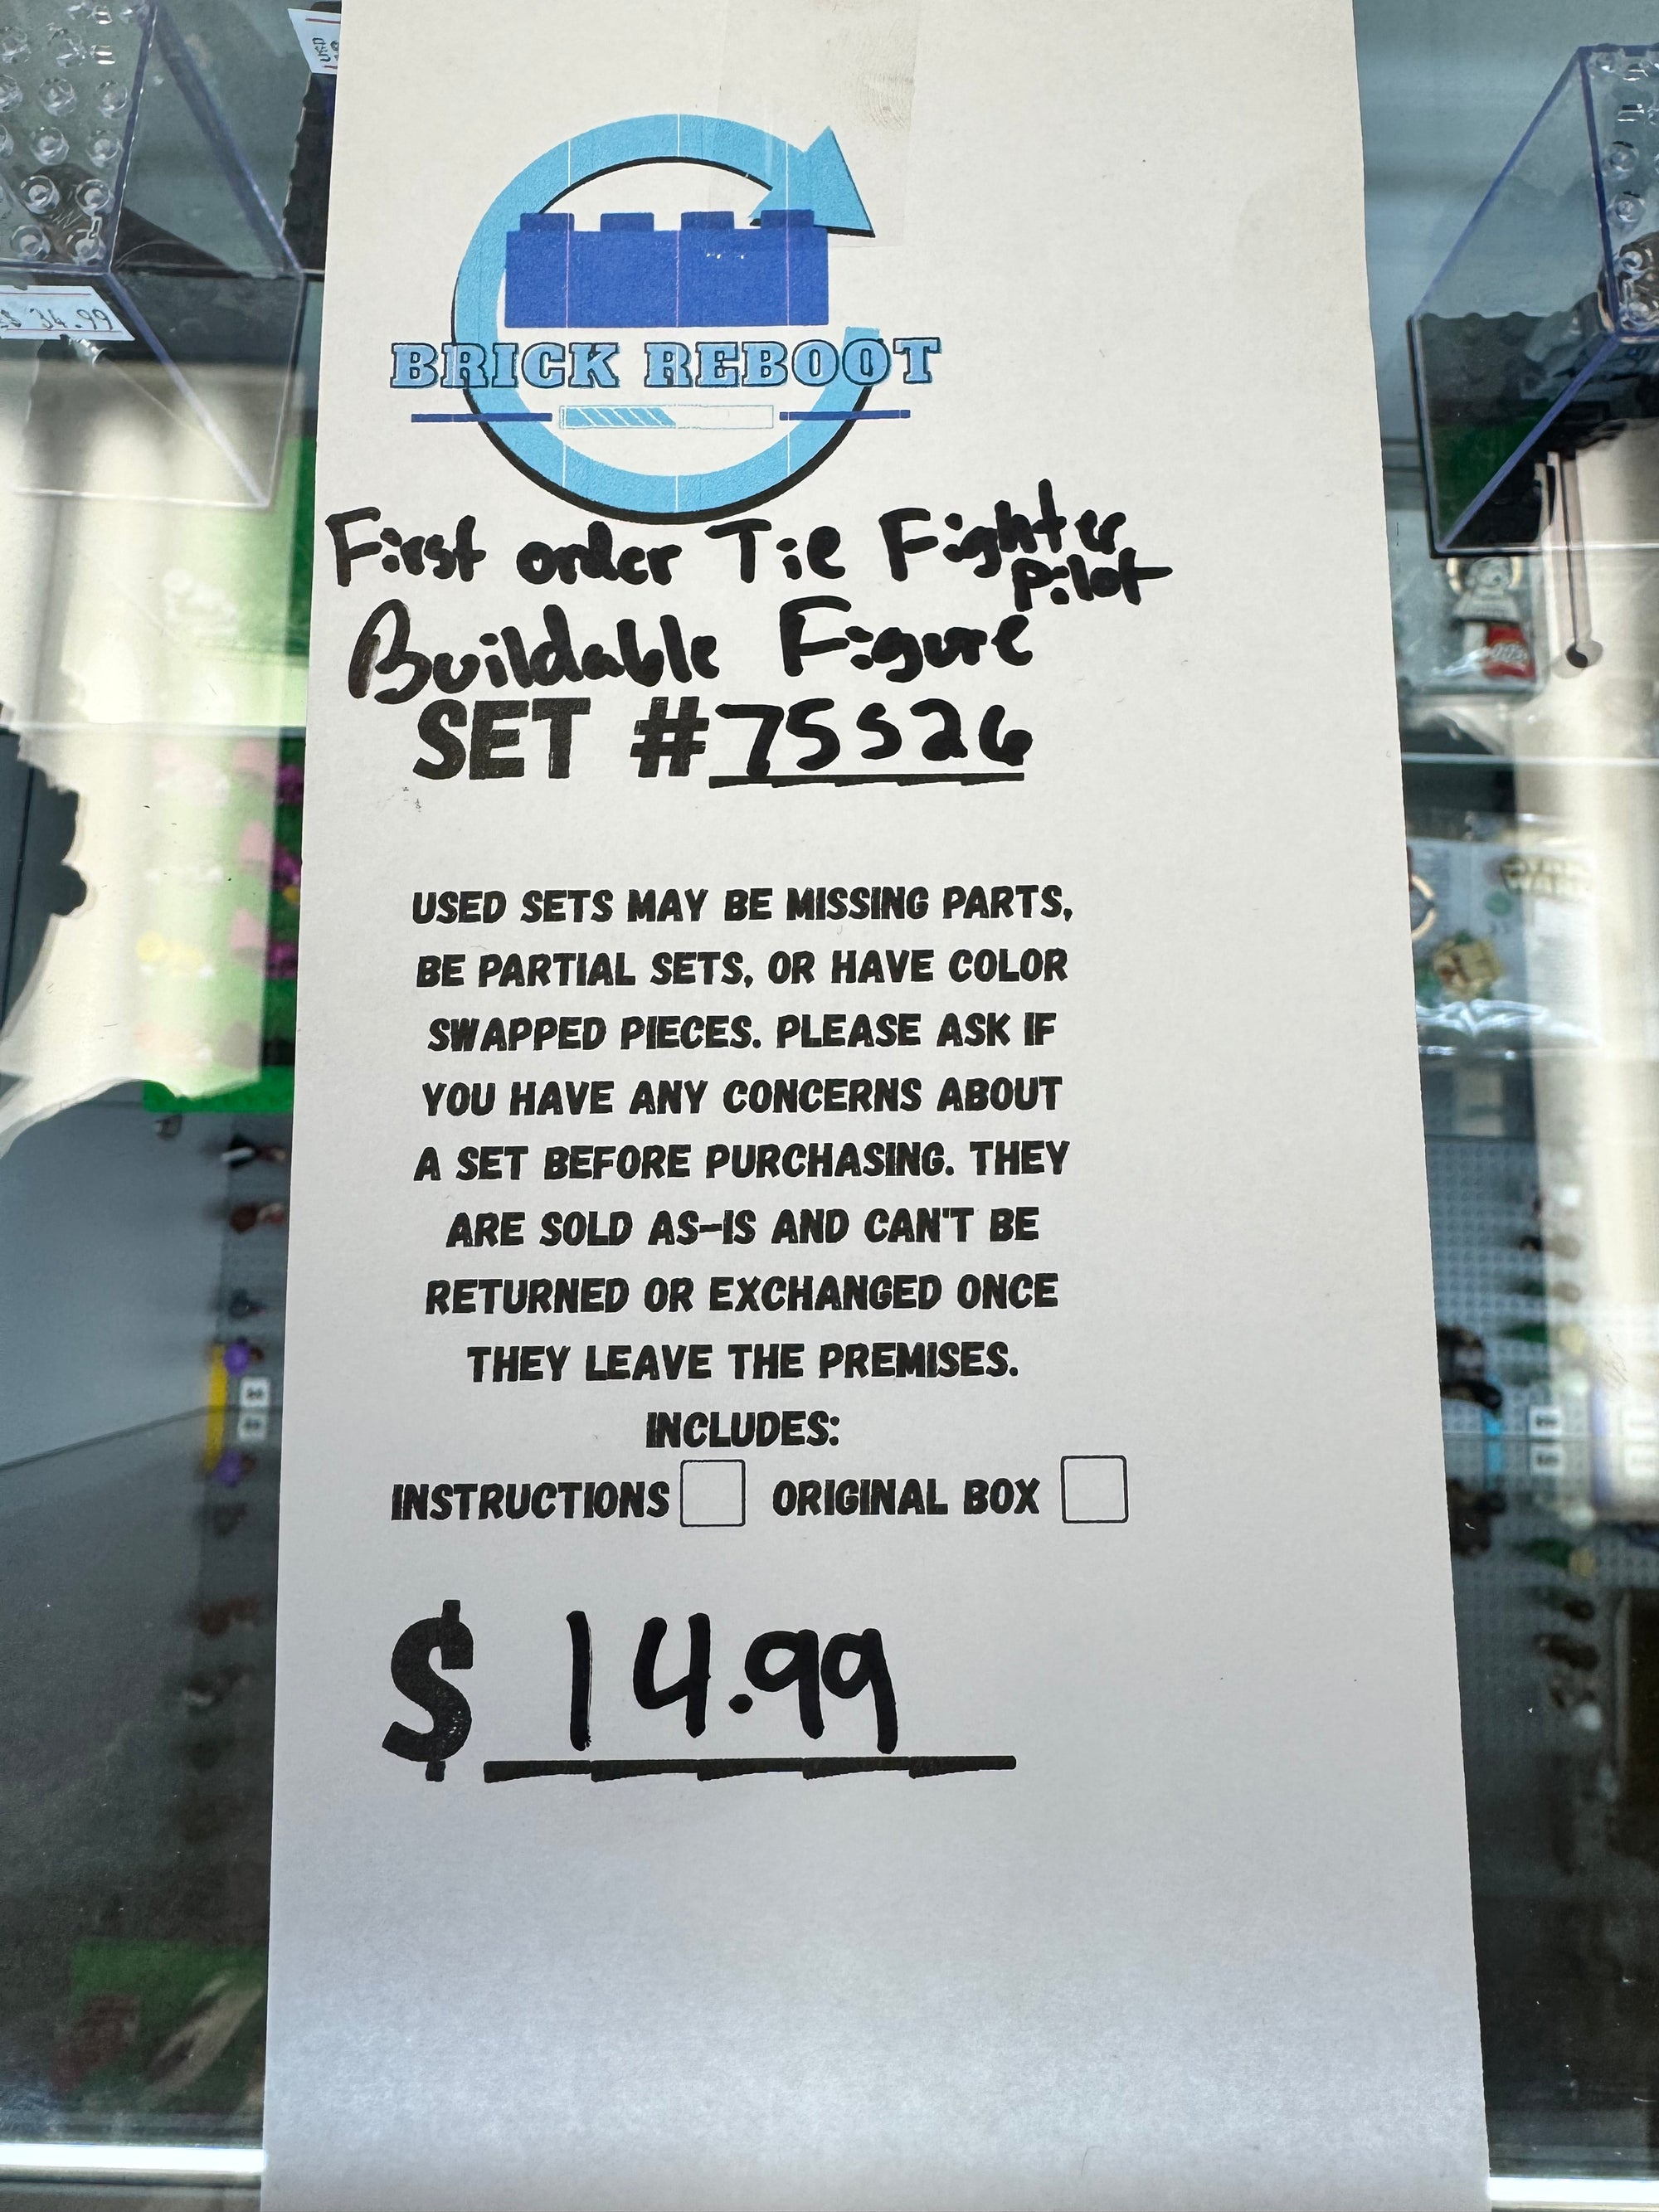 BRICK REBOOT
First order Tie Fighter
Pilot
Buildable Figure
SET #75526
USED SETS MAY BE MISSING PARTS,
BE PARTIAL SETS, OR HAVE COLOR
SWAPPED PIECES. PLEASE ASK IF
YOU HAVE ANY CONCERNS ABOUT
A SET BEFORE PURCHASING. THEY
ARE SOLD AS-IS AND CAN'T BE
RETURNED OR EXCHANGED ONCE
THEY LEAVE THE PREMISES.
INCLUDES:
INSTRUCTIONS ORIGINAL BOX
$ 14.99
34.99
USD